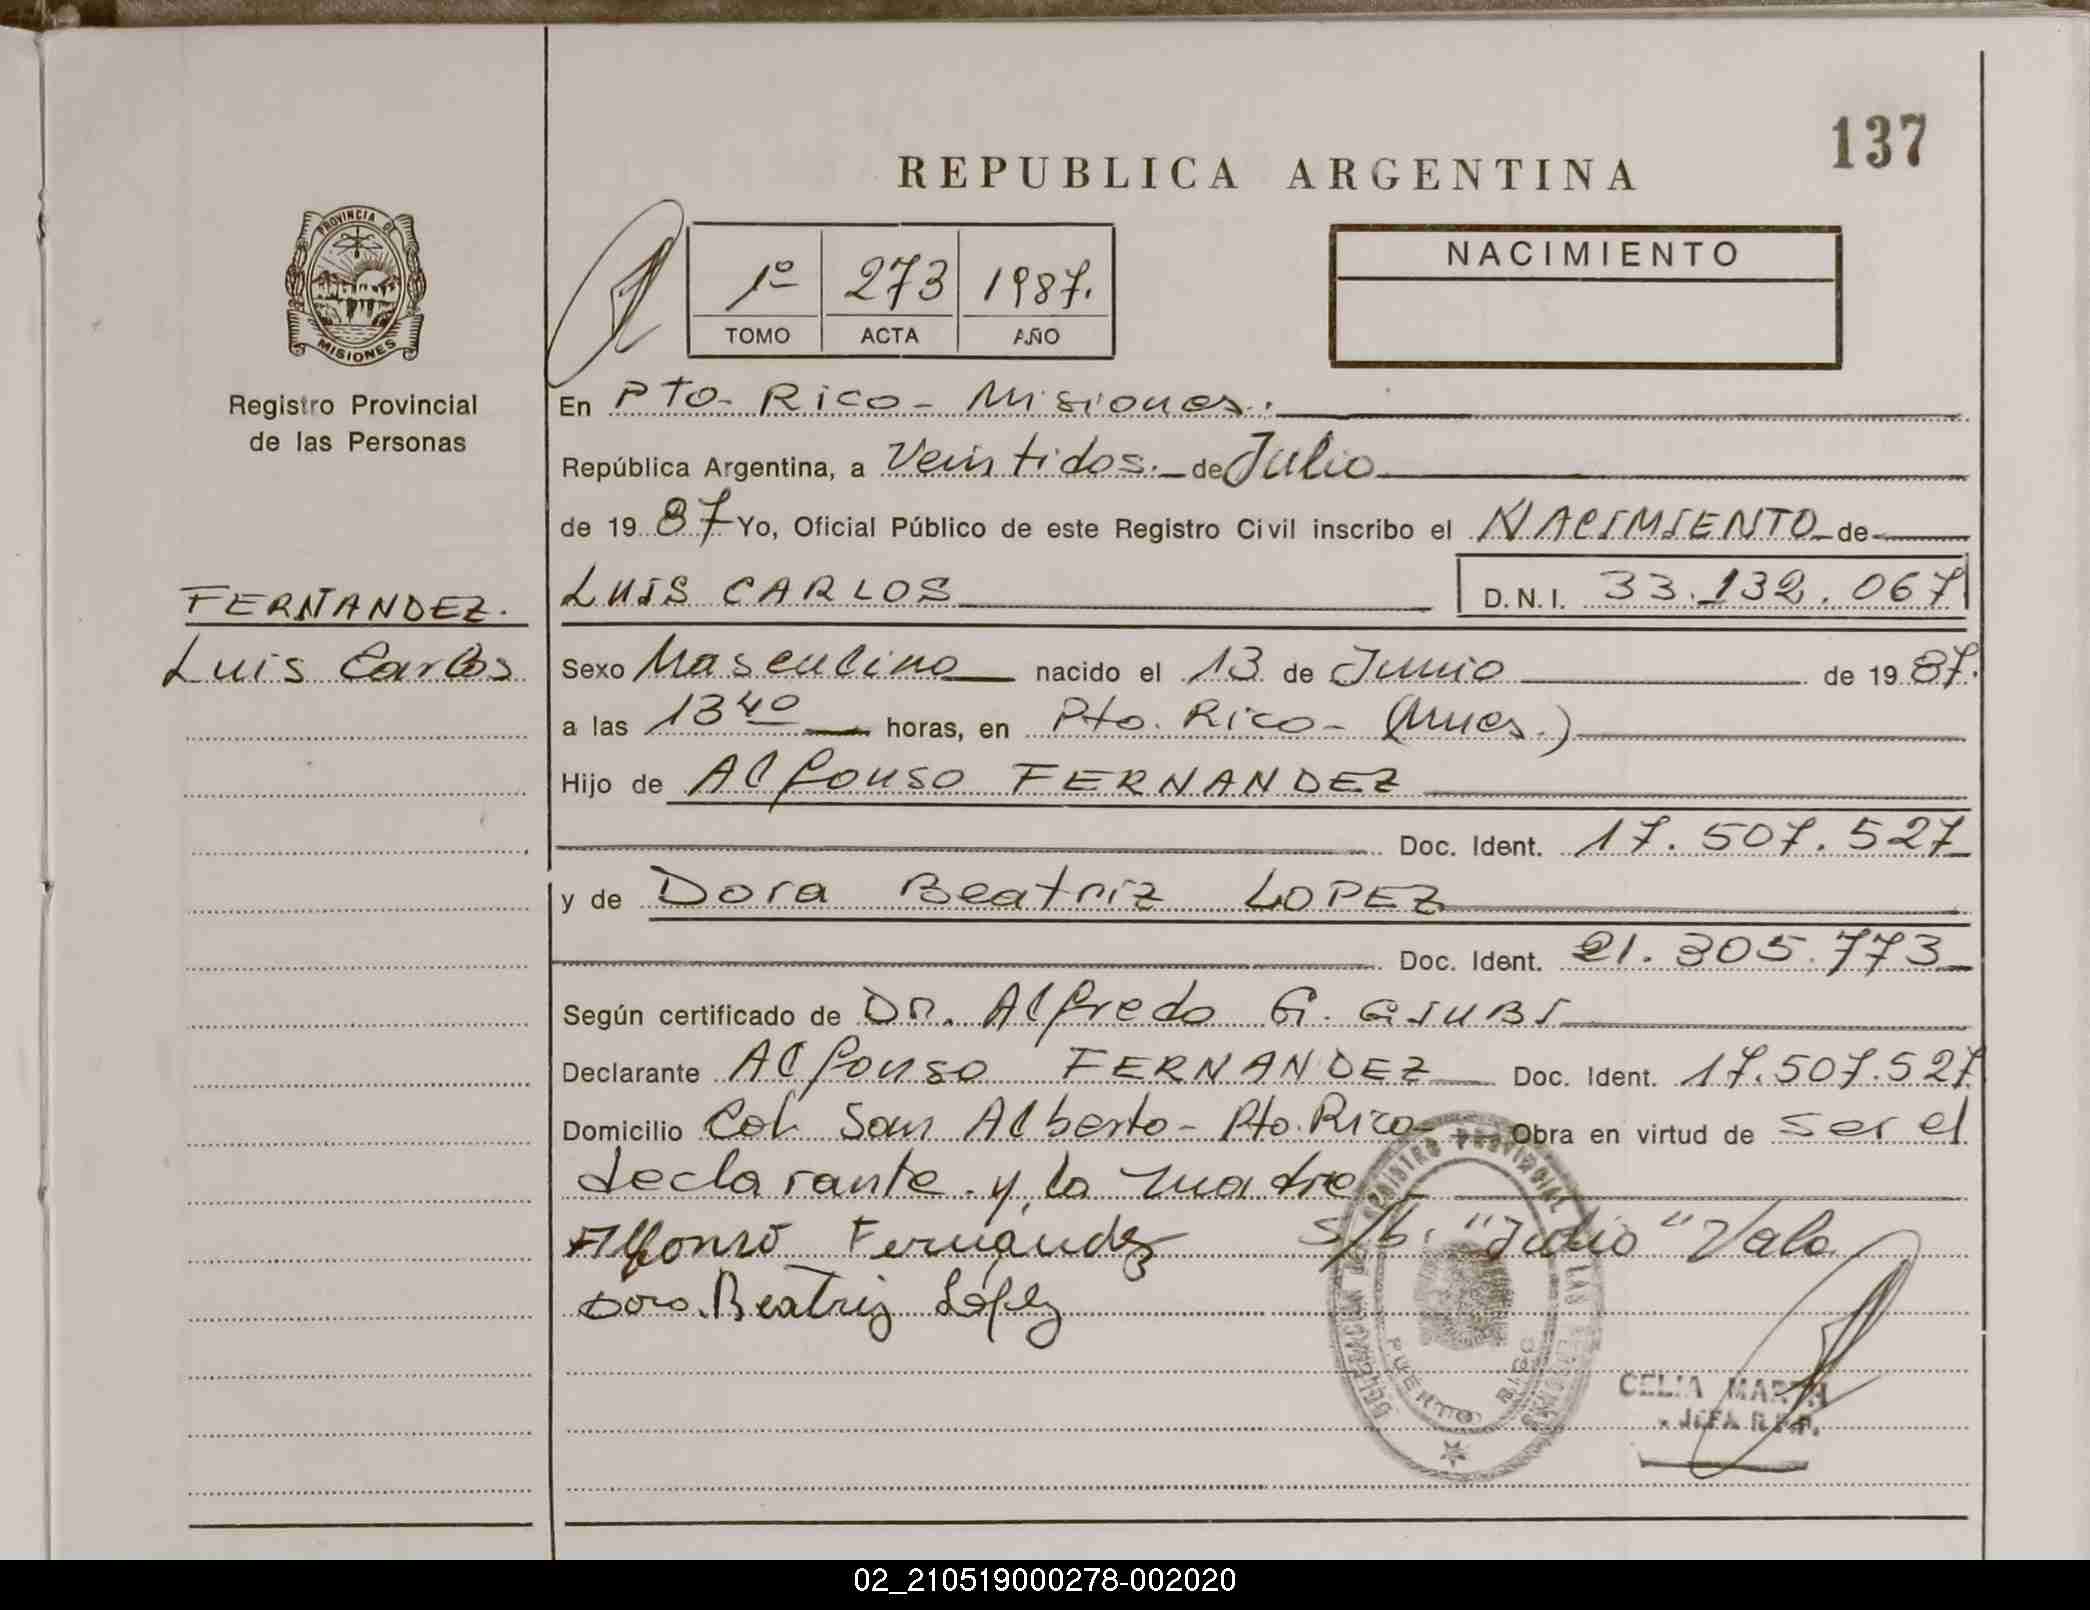 137
REPUBLICA ARGENTINA
PROVINCIA DE
MISIONES
Registro Provincial
de las Personas
1º 273 1987.
TOMO ACTA AÑO
NACIMIENTO
En Pto- Rico- Misiones.
República Argentina, a Veintidos. de Julio
de 19 87 Yo, Oficial Público de este Registro Civil inscribo el NACIMIENTO de
FERNANDEZ.
Luis Carlos
LUIS CARLOS D.N.I. 33.132.067
Sexo Masculino nacido el 13 de Junio de 19 87.
a las 13 40 horas, en Pto. Rico- (Mnes.)
Hijo de Alfonso FERNANDEZ
Doc. Ident. 17.507.527
y de Dora Beatriz LOPEZ
Doc. Ident. 21.305.773
Según certificado de Dr. Alfredo G. GIUBI
Declarante Alfonso FERNANDEZ Doc. Ident. 17.507.527
Domicilio Col. San Alberto- Pto. Rico- Obra en virtud de ser el
declarante y la madre
Alfonso Fernández S/b. "Julio" Vale
Dora Beatriz López
DELEGACION DEL REGISTRO PROVINCIAL DE LAS PERSONAS
PUERTO RICO
CELIA MARTA
JEFA R.P.P.
02_210519000278-002020